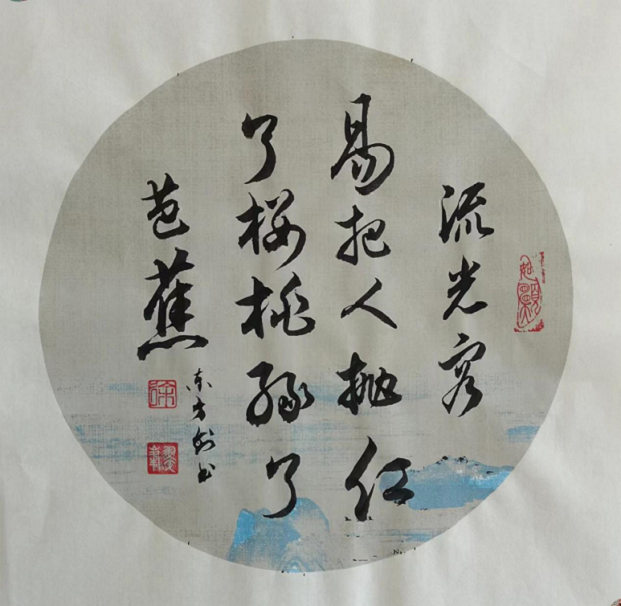 流光容
易把人抛红
了樱桃绿了
芭蕉
东方剑书
徐